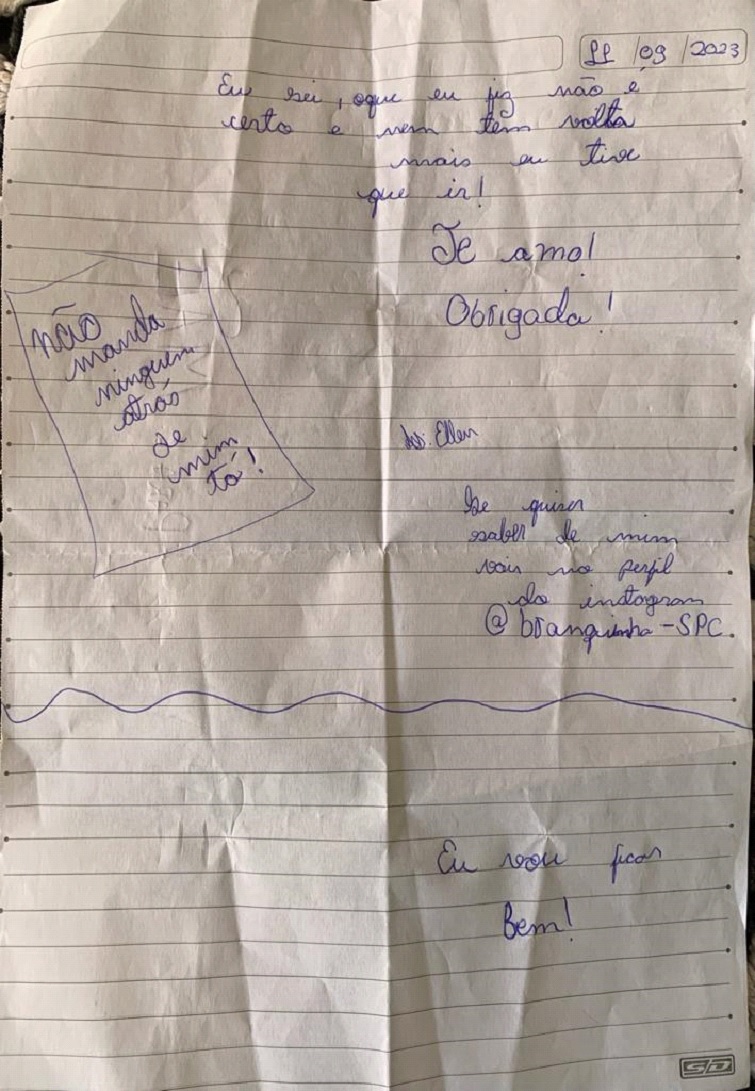 11/09/2023
Eu sei, oque eu fiz não é
certo e nem tem volta
mais eu tive
que ir!
Te amo!
Obrigada!
não
manda
ninguem
atrás
de
mim
tá!
Ass: Ellen
Se quiser
saber de mim
vair no perfil
do instagram
@branquinha-SPC.
Eu vou ficar
Bem!
SD